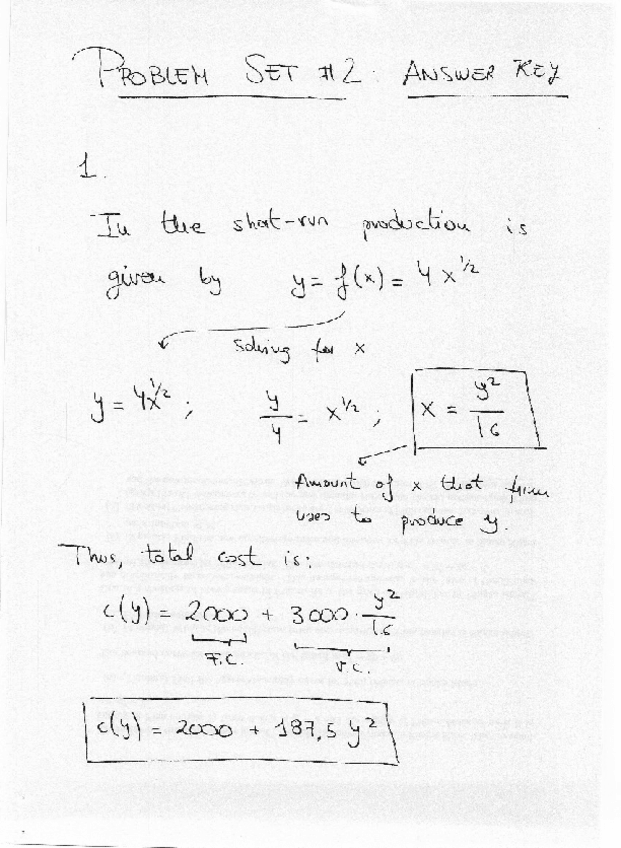 PROBLEM SET #2: ANSWER KEY
1.
In the short-run production is
given by y = f(x) = 4 x^1/2
Solving for x
y = 4x^1/2 ; y/4 = x^1/2 ; x = y²/16
Amount of x that firm
uses to produce y.
Thus, total cost is:
c(y) = 2000 + 3000 · y²/16
F.C. V.C.
c(y) = 2000 + 187,5 y²